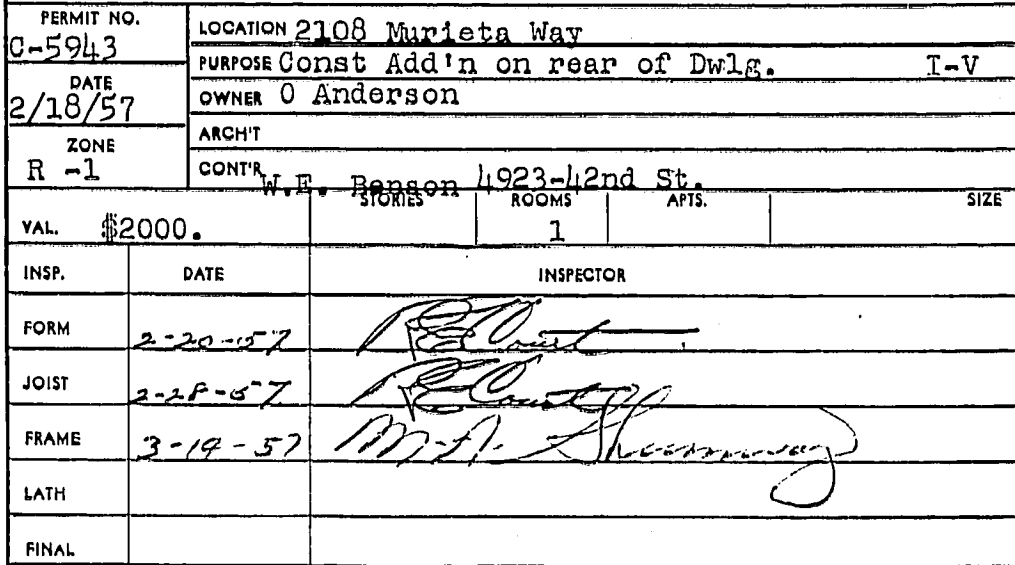 PERMIT NO.
C-5943
DATE
2/18/57
ZONE
R -1
LOCATION 2108 Murieta Way
PURPOSE Const Add'n on rear of Dwlg. I-V
OWNER O Anderson
ARCH'T
CONT'R W.E. Benson 4923-42nd St.
VAL. $2000.
STORIES ROOMS APTS. SIZE
1
INSP. DATE INSPECTOR
FORM 2-20-57
JOIST 2-28-57
FRAME 3-19-57 Shumway
LATH
FINAL